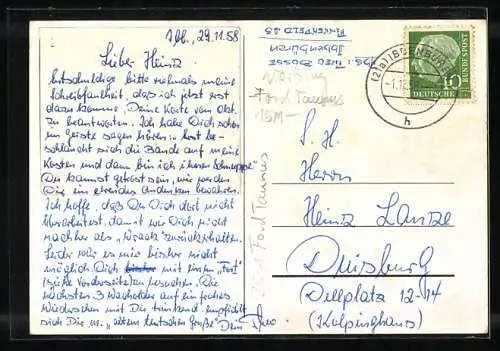 Ibb., 29.11.58
Lieber Heinz
Entschuldige bitte vielmals meine
Schreibfaulheit, daß ich jetzt erst
dazu komme, Deine Karte vom Okt.
zu beantworten. Ich habe Dich schon
im Geiste sagen hören: erst be-
schlaucht sich die Bande auf meine
Kosten und dann bin ich ihnen schnuppe.
Du kannst getrost sein, wir werden
Dir ein ehrendes Andenken bewahren.
Ich hoffe, daß Du Dich dort nicht
überarbeitest, damit wir Dich nicht
nachher als „Wrack" zurückerhalten.
Leider war es mir bisher nicht
möglich, Dich mit einem „Ford"
(siehe Vorderseite) zu besuchen. Die
nächsten 3 Wacholder auf ein frohes
Wiedersehen mit Dir trinkend empfiehlt
sich Dir m. „altem teutschen Gruße" Dein Theo
Abs.: Theo Bosse
Ibbenbüren
(21a) IBBENBÜREN
h
10
DEUTSCHE BUNDESPOST
Ford Taunus
15M
Ford Taunus
S. H.
Herrn
Heinz Lantze
Duisburg
Dellplatz 12-14
(Kolpinghaus)